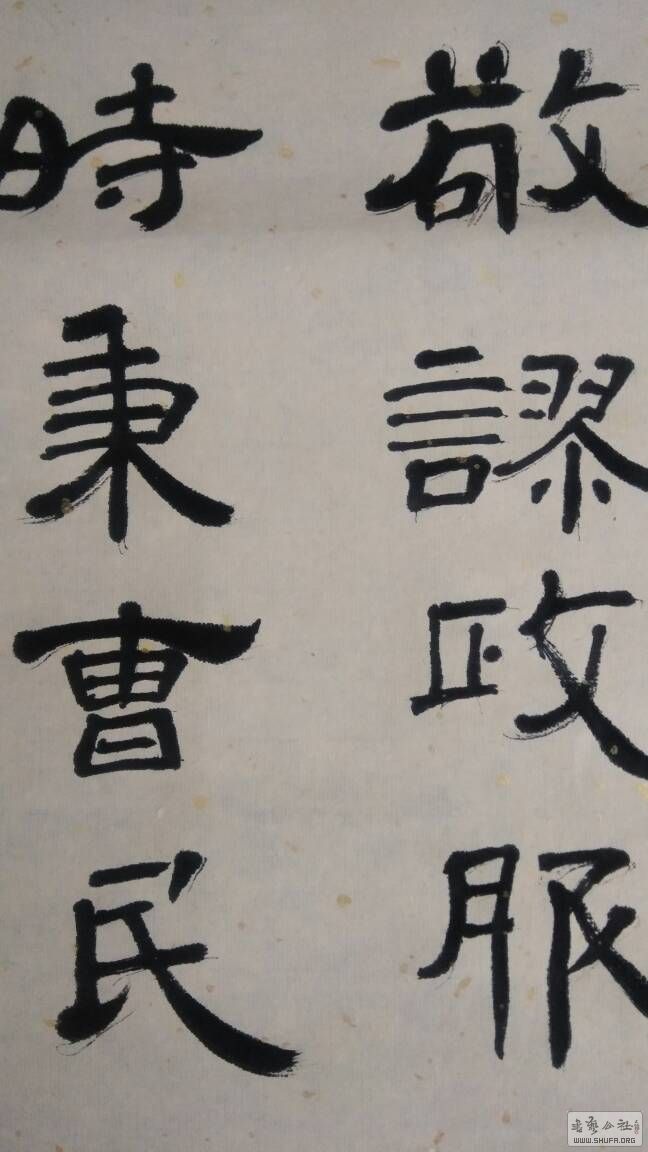 敬謬政服
時秉曹民
書藝公社
WWW.SHUFA.ORG